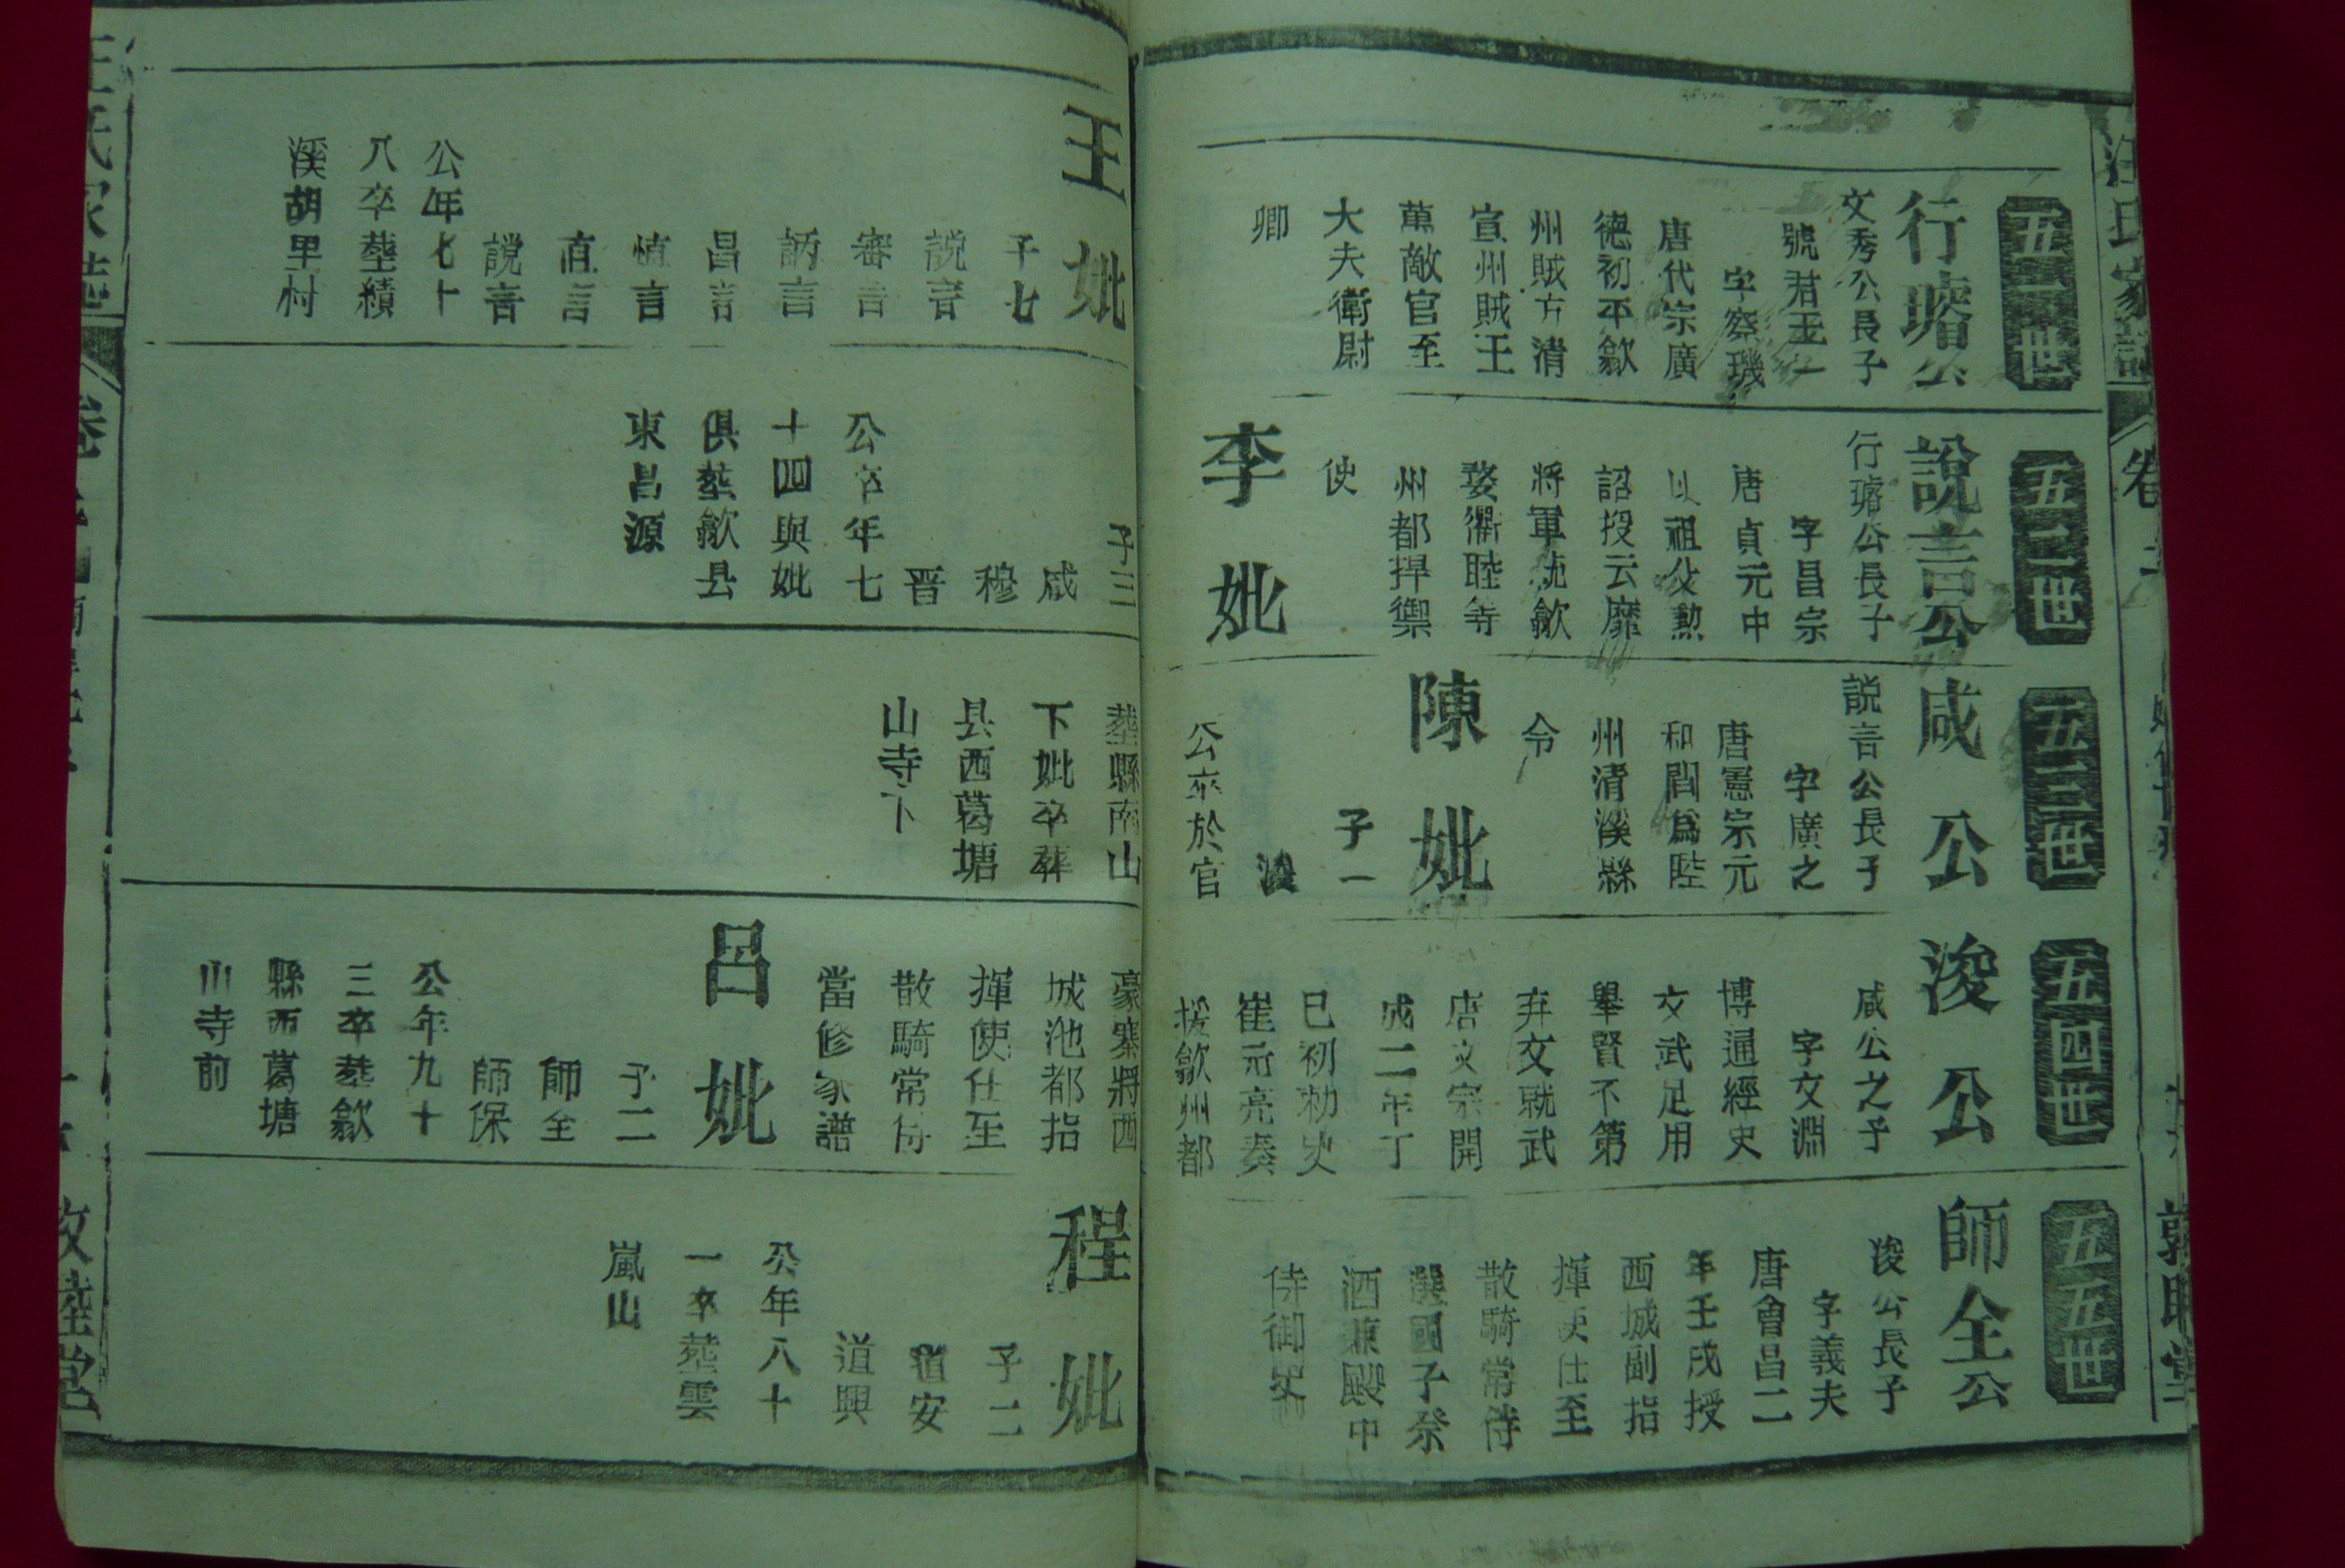 五一世
行璿公
文秀公長子
號君玉
字察璣
唐代宗廣
德初平歙
州賊方清
宣州賊王
萬敵官至
大夫衛尉
卿
王妣
子七
說言
審言
訥言
昌言
慎言
直言
說言
公年七十
八卒塟績
溪胡里村
五二世
說言公
行璿公長子
字昌宗
唐貞元中
以祖父勲
詔授云麾
將軍統歙
婺衢睦等
州都捍禦
使
李妣
子三
咸
穆
晋
公卒年七
十四與妣
俱塟歙县
東昌源
五三世
咸公
說言公長子
字廣之
唐憲宗元
和間爲睦
州清溪縣
令
陳妣
子一
浚
公卒於官
塟縣南山
下妣卒葬
县西葛塘
山寺下
五四世
浚公
咸公之子
字文淵
博通經史
文武足用
舉賢不第
弃文就武
唐文宗開
成二年丁
巳初勅史
崔元亮奏
援歙州都
豪寨將西
城池都指
揮使仕至
散騎常侍
當修家譜
呂妣
子二
師全
師保
公年九十
三卒塟歙
縣西葛塘
山寺前
五五世
師全公
浚公長子
字義夫
唐會昌二
年壬戌授
西城副指
揮使仕至
散騎常侍
選國子祭
酒兼殿中
侍御
程妣
子二
道安
道興
公年八十
一卒塟雲
嵐山
汪氏家譜
敦睦堂